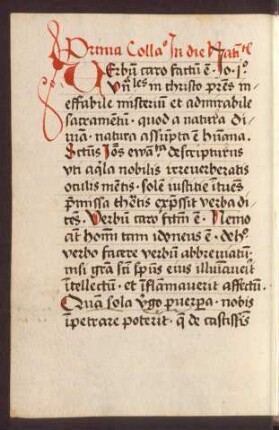 Prima Colla° In die Nat̄ītl
Verbū caro factū ē · Jo · j°
Vn̄les in christo p̄res in
effabile misteriū et admirabile
sacramētū · quod a natura di
uīa · natura assūpta ē hūana ·
Sctūs Jōs ewāta descripturus
vti aq̄la nobilis irreuerberatis
oculis mētis · solē iustitie ītues
p̄missa thētis exp̄ssit verba di
cēs · Verbū caro fctm̄ ē · Nemo
cit homī tam idoneus ē · de h°
verbo facere verbū abbreuiatū
nisi grā sctī sp̄us eius illuīauerit
ītellectū · et īflamauerit affectū ·
Quā sola v̄go p̄uerpa · nobis
īpetrare poterit · q̄ de castissīs